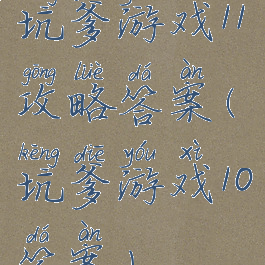 坑爹游戏11
gōng lüè dá àn
攻略答案(
kēng diē yóu xì
坑爹游戏10
dá àn
答案)